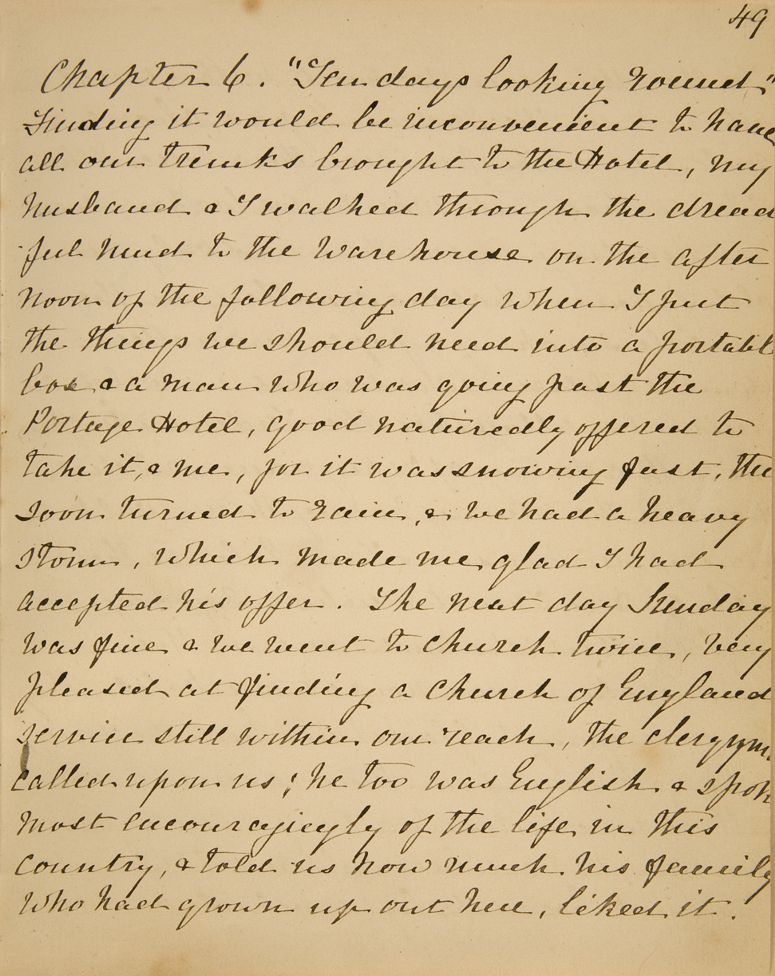 49
Chapter 6. "Ten days looking round"
Finding it would be inconvenient to have
all our trunks brought to the Hotel, my
husband & I walked through the dread
ful mud to the warehouse on the after
noon of the following day when I put
the things we should need into a portabl
box & a man who was going past the
Portage Hotel, good naturedly offered to
take it, & me, for it was snowing fast, this
soon turned to rain, & we had a heavy
storm, which made me glad I had
accepted his offer. The next day Sunday
was fine & we went to church twice, very
pleased at finding a Church of England
service still within our reach, the clergym
called upon us; he too was English & spok
most encouragiegly of the life in this
country, & told us how much his family
who had grown up out here, liked it.